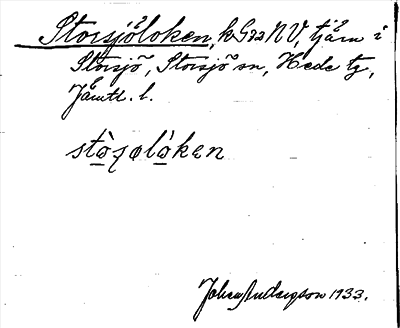 Storsjöloken, k G22 NV, tjärn i
Storsjö, Storsjö sn, Hede tg,
Jämtl. l.
stò̱ʂølò̱ken
Johan Anderson 1933.